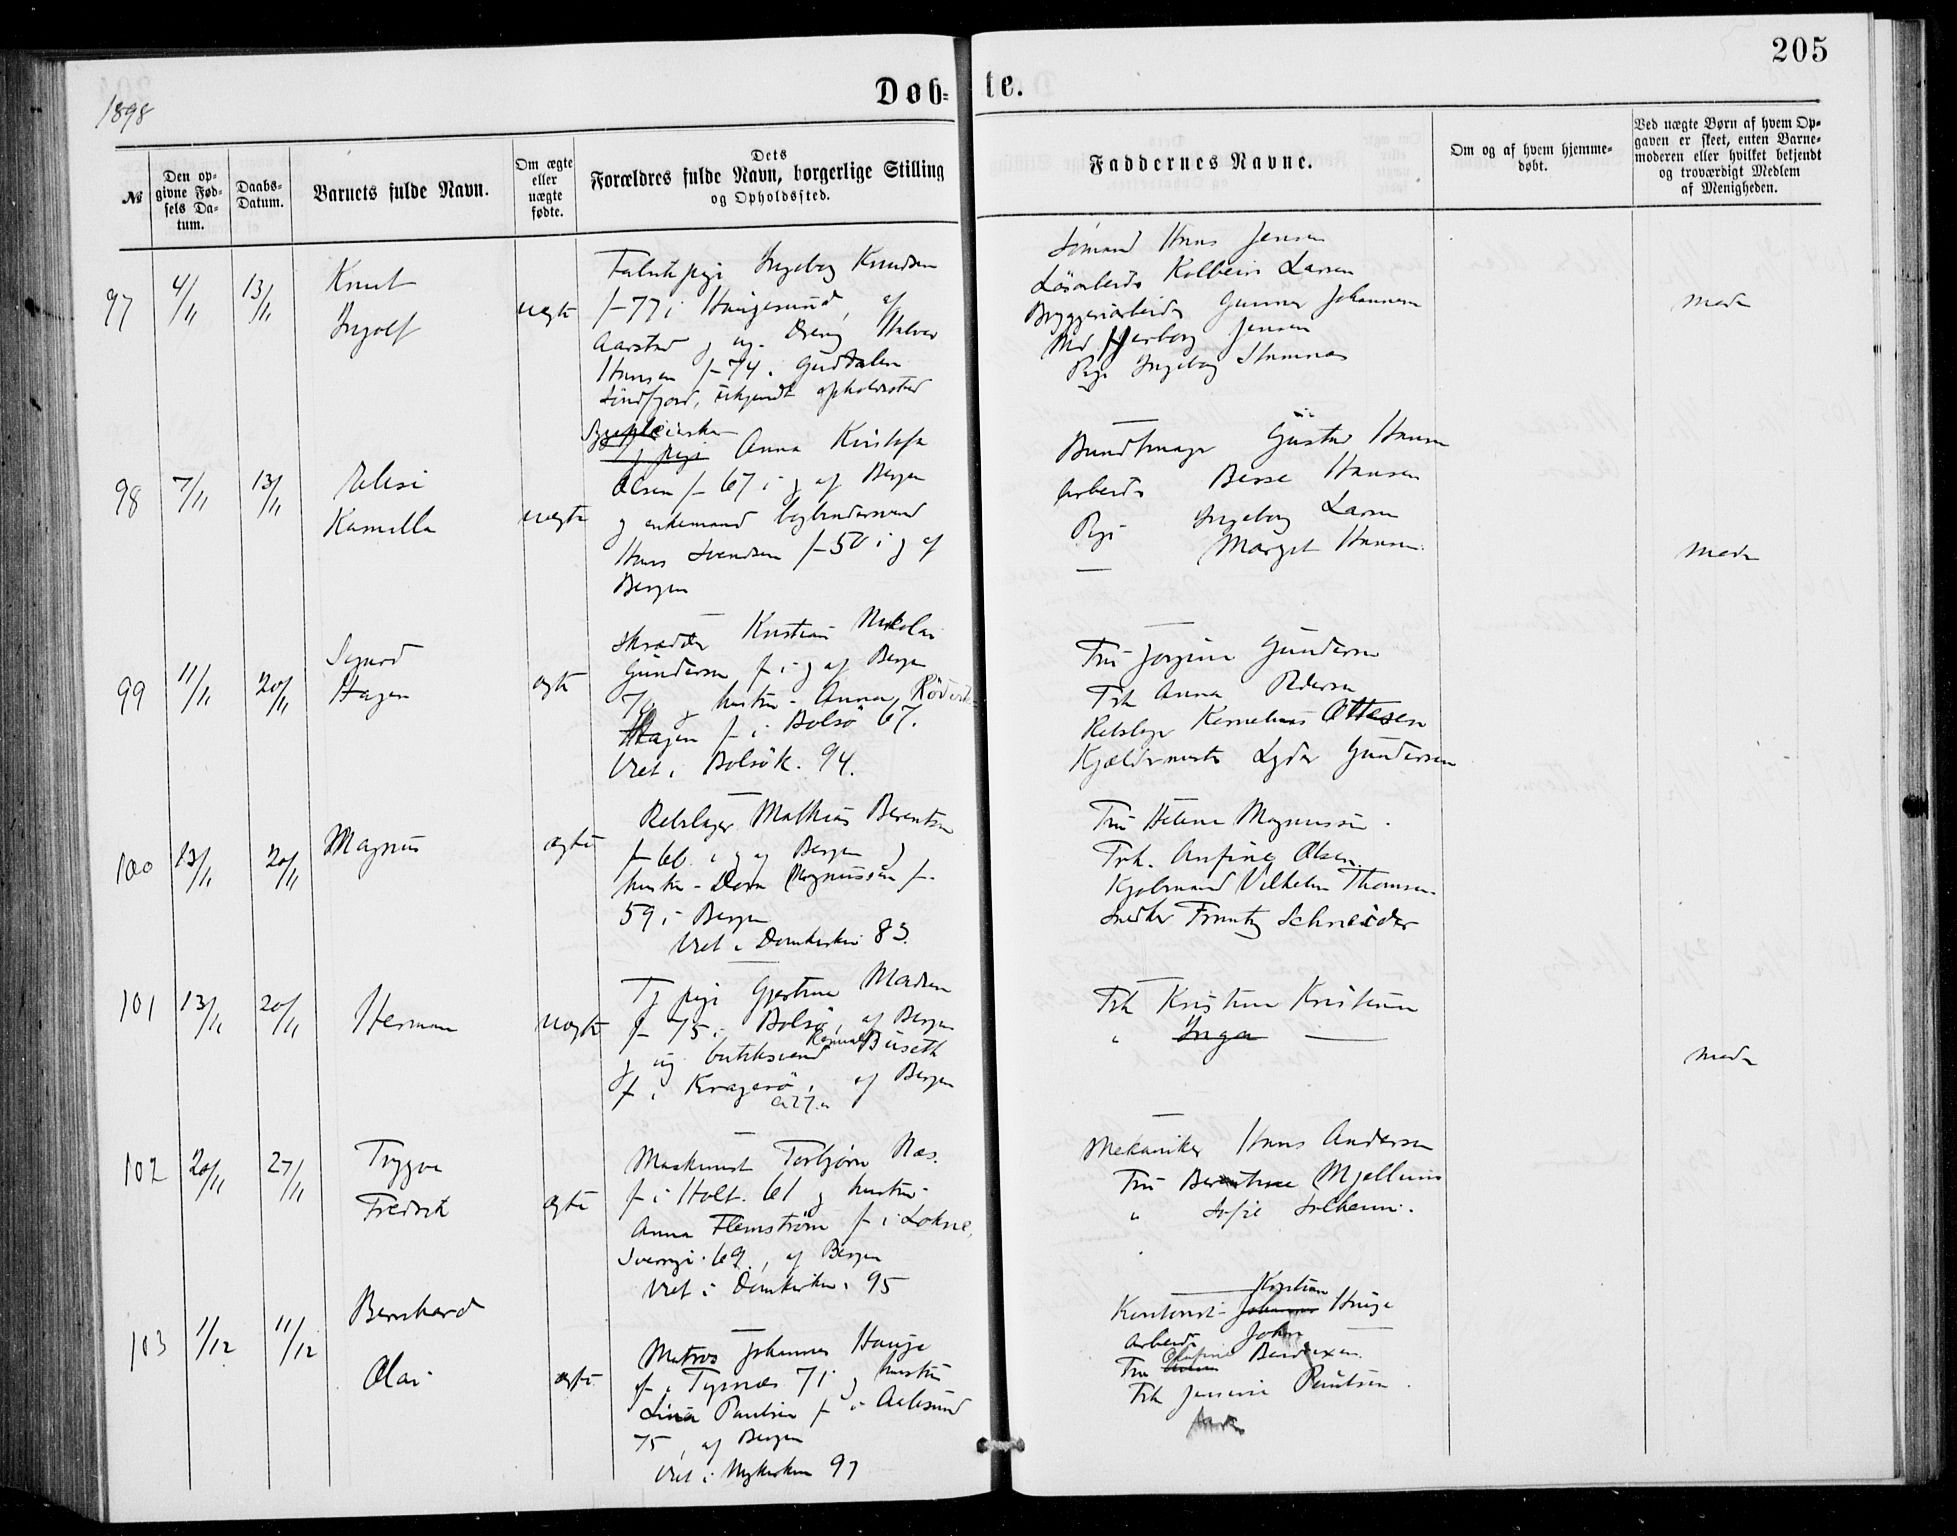 205
1898
Døb-te.
№
Den opgivne Fødsels Datum.
Daabs-Datum.
Barnets fulde Navn.
Om ægte eller uægte fødte.
Dets Forældres fulde Navn, borgerlige Stilling og Opholdssted.
Faddernes Navne.
Om og af hvem hjemmedøbt.
Ved uægte Børn af hvem Opgaven er skeet, enten Barnemoderen eller hvilket bekjendt og troværdigt Medlem af Menigheden.
97
4/11
13/11
Knut
Ingolf
uægte
Ingeborg Knudsen
f-77 i Haugesund, af
Aarstad og ug. Dreng Halvor
Hansen f-74 i
Søndfjord, ukjendt opholdssted
Sømand Hans Jensen
Løsarbeider Kolbein Larsen
Bryggeriarbeider Gunner Johannesen
Herborg Jensen
Pige Ingeborg
moder
98
7/11
13/11
Elisi
Kamilla
uægte
pige Anna Kristofa
Olsen f-67 i og af Bergen
og enkemand
Hans Svendsen f-50 i og af
Bergen
Bundtmager Gustav Hansen
Arbeider Berse Hansen
Pige Ingeborg Larsen
— Marget Hansen
moder
99
11/11
20/11
Sigurd
Hagen
ægte
Skrædder Kristian Nikolai
Gundersen f i og af Bergen
70 og hustru Anna
Hagen f i Bolsø 67.
Viet i Bolsø K. 94.
Fru Jørgine Gundersen
Frk Anna Pedersen
Rebslager Kornelius Ottesen
Kjældermester Lyder Gundersen
100
13/11
20/11
Magnus
ægte
Rebslager Mathias Berentsen
f-66 i og af Bergen og
hustru Dora Magnussen f.
59 i Bergen
Viet i Domkirken 83.
Fru Helene Magnussen.
Frk. Anfine Olsen.
Vilhelm Thomsen.
Snedker Frantz Schneider
101
13/11
20/11
Herman
uægte
Tj pige Gjertine Madsen
f-75 i Bolsø, af Bergen
og ug butiksvend Buseth
f i Kragerø, af Bergen
Frk Kristine Kristensen
" Inga —
moder
102
20/11
27/11
Trygve
Fredrik
ægte
Maskinist Torbjørn Næs.
f i Holt. 61 og hustru
Anna Flemstrøm f i Lokne,
Sverige 69, af Bergen
Viet i Domkirken 95
Mekaniker Hans Andersen
Fru Berentine Mjellum
" Sofie Solheim.
103
1/12
11/12
Bernhard
Olai
ægte
Matros Johannes Hauge
f i Tysnæs 71 og hustru
Lina Paulsen f i Aalesund
75, af Bergen
Viet i Nykirken 97
Kristian
Kontorist Johannes Hauge
Arbeider John —
Fru Bendixen
Frk Jensine Paulsen.